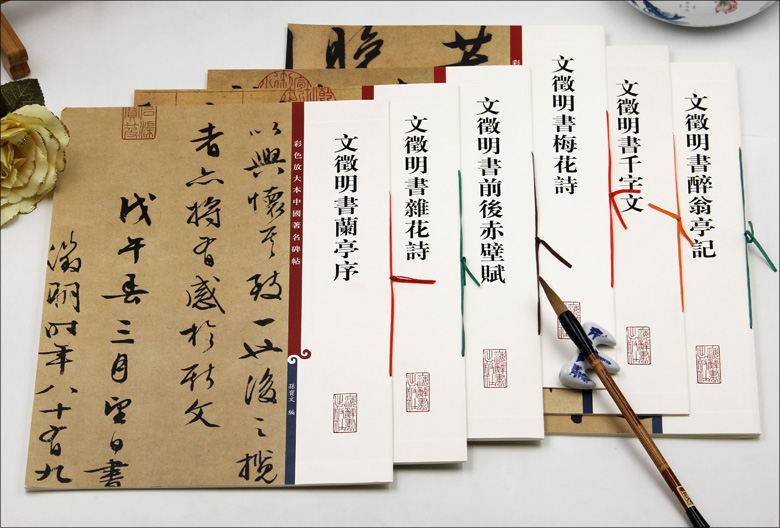 文徵明書蘭亭序
彩色放大本中國著名碑帖
孫寶文 編
以興懷其致一也後之攬
者亦將有感於斯文
戊午春三月望日書
徵明時年八十有九
文徵明書雜花詩
文徵明書前後赤壁賦
文徵明書梅花詩
文徵明書千字文
文徵明書醉翁亭記